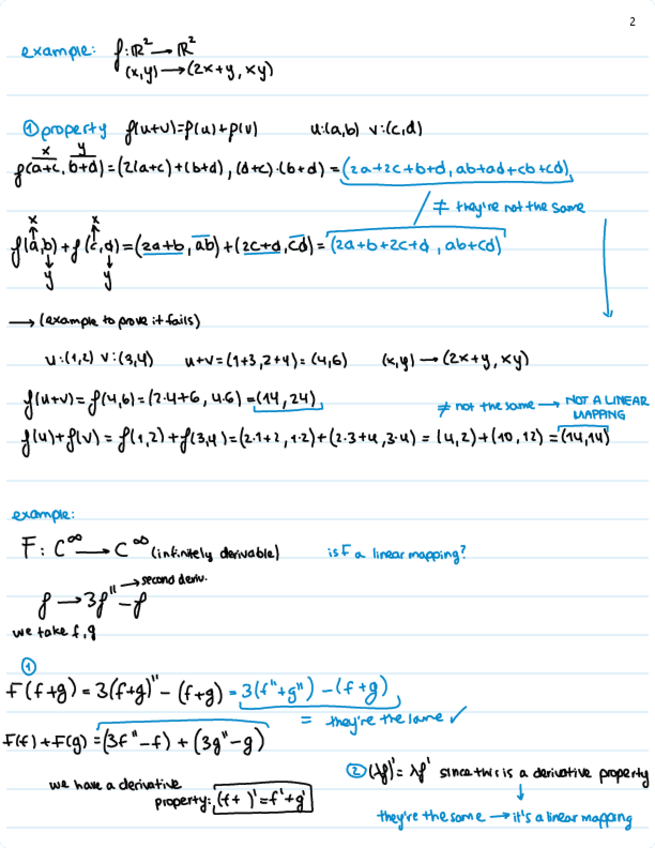 2
example: f: ℝ² → ℝ²
(x,y) → (2x+y, xy)
① property f(u+v)=f(u)+f(v) u:(a,b) v:(c,d)
x y
f(a+c, b+d) = (2(a+c)+(b+d), (a+c)·(b+d) = (2a+2c+b+d, ab+ad+cb+cd)
≠ they're not the same
x x
f(a,b) + f(c,d) = (2a+b, ab) + (2c+d, cd) = (2a+b+2c+d, ab+cd)
y y
→ (example to prove it fails)
u:(1,2) v:(3,4) u+v = (1+3, 2+4) = (4,6) (x,y) → (2x+y, xy)
f(u+v) = f(4,6) = (2·4+6, 4·6) = (14, 24)
≠ not the same → NOT A LINEAR MAPPING
f(u)+f(v) = f(1,2)+f(3,4) = (2·1+2, 1·2)+(2·3+4, 3·4) = (4,2)+(10,12) = (14,14)
example:
F: C∞ → C∞ (infinitely derivable) is F a linear mapping?
→ second deriv.
f → 3f'' - f
we take f, g
①
F(f+g) = 3(f+g)'' - (f+g) = 3(f''+g'') - (f+g)
= they're the same ✓
F(f)+F(g) = (3f''-f) + (3g''-g)
② (λf)' = λf' since this is a derivative property
we have a derivative
property: (f+ )'=f'+g'
they're the same → it's a linear mapping